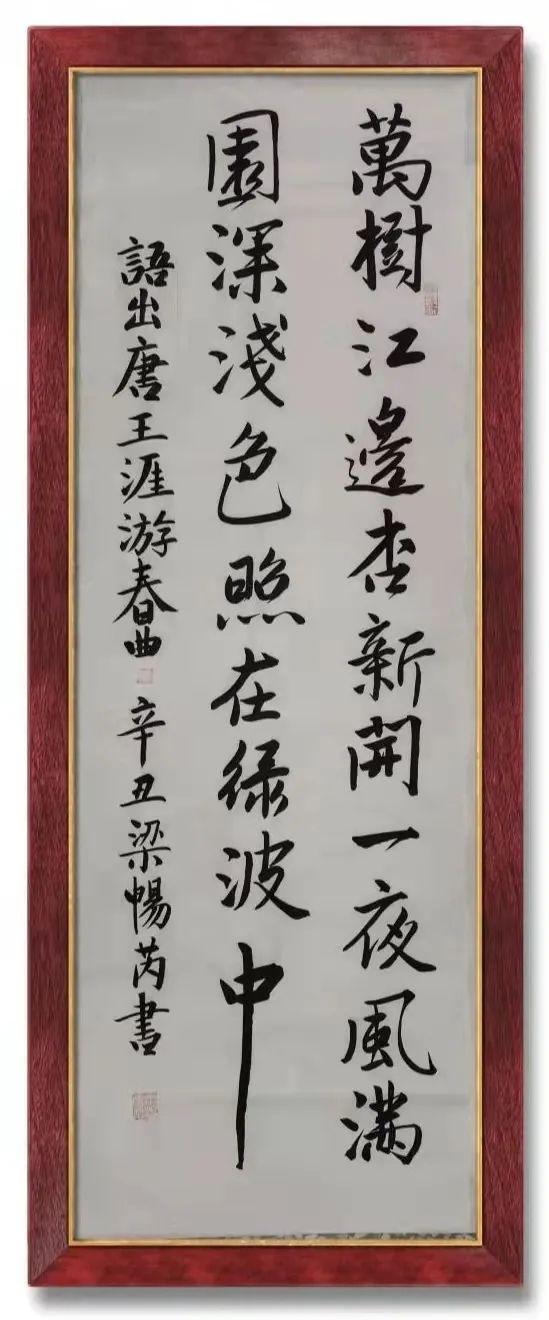 萬樹江邊杏新開一夜風滿
園深淺色照在緑波中
語出唐王涯游春曲 辛丑梁暢芮書